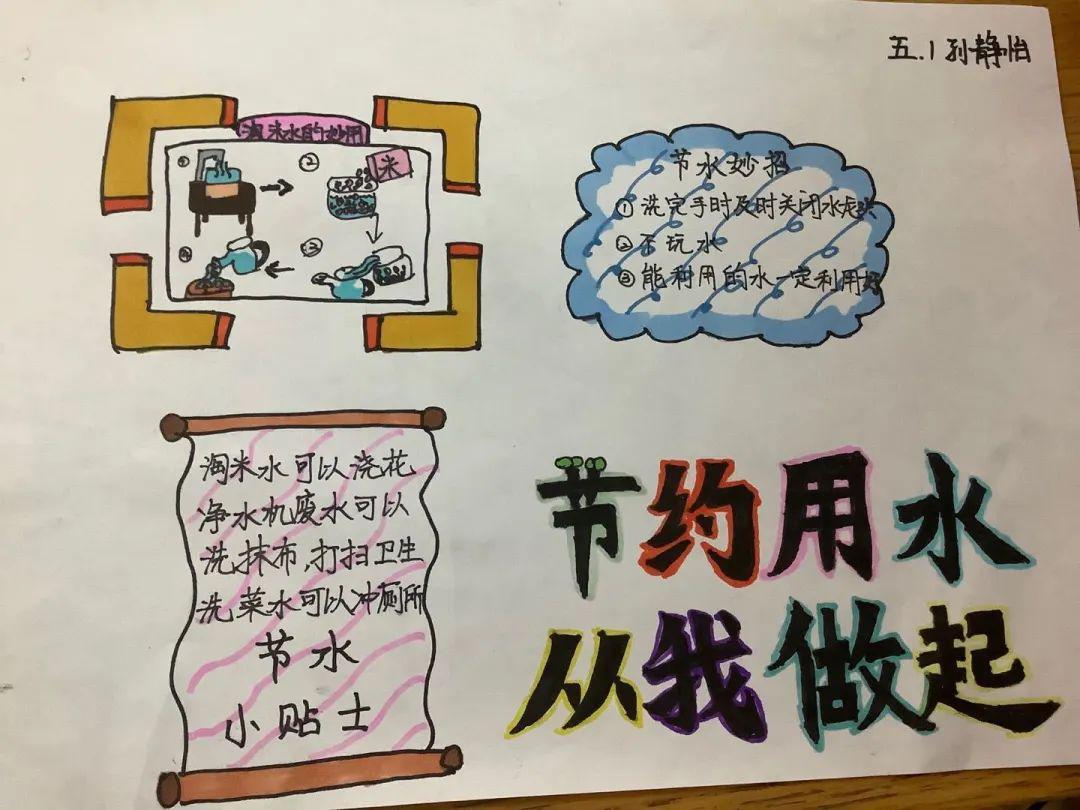 五.1 孙静怡
淘米水的妙用
① ②
米
④ ③
节水妙招
① 洗完手时及时关闭水龙头
② 不玩水
③ 能利用的水一定利用好
淘米水可以浇花
净水机废水可以
洗抹布,打扫卫生
洗菜水可以冲厕所
节水
小贴士
节约用水
从我做起